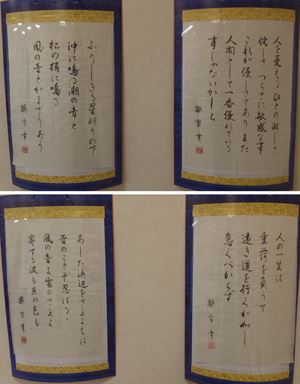 人を憂える ひとの淋しさ
侘しさ つらさに敏感な事
これが優しさであり また
人間として一番優れている
事じゃないかしら
ふりしきる星明りの下
沖に鳴る潮の音と
松の梢に鳴る
風の音
人の一生は
重荷を負うて
遠き道を行くが如し
急ぐべからず
あした浜辺をさまよえば
昔のことぞ忍ばるゝ
風の音よ雲のさまよ
寄する波も貝の色も